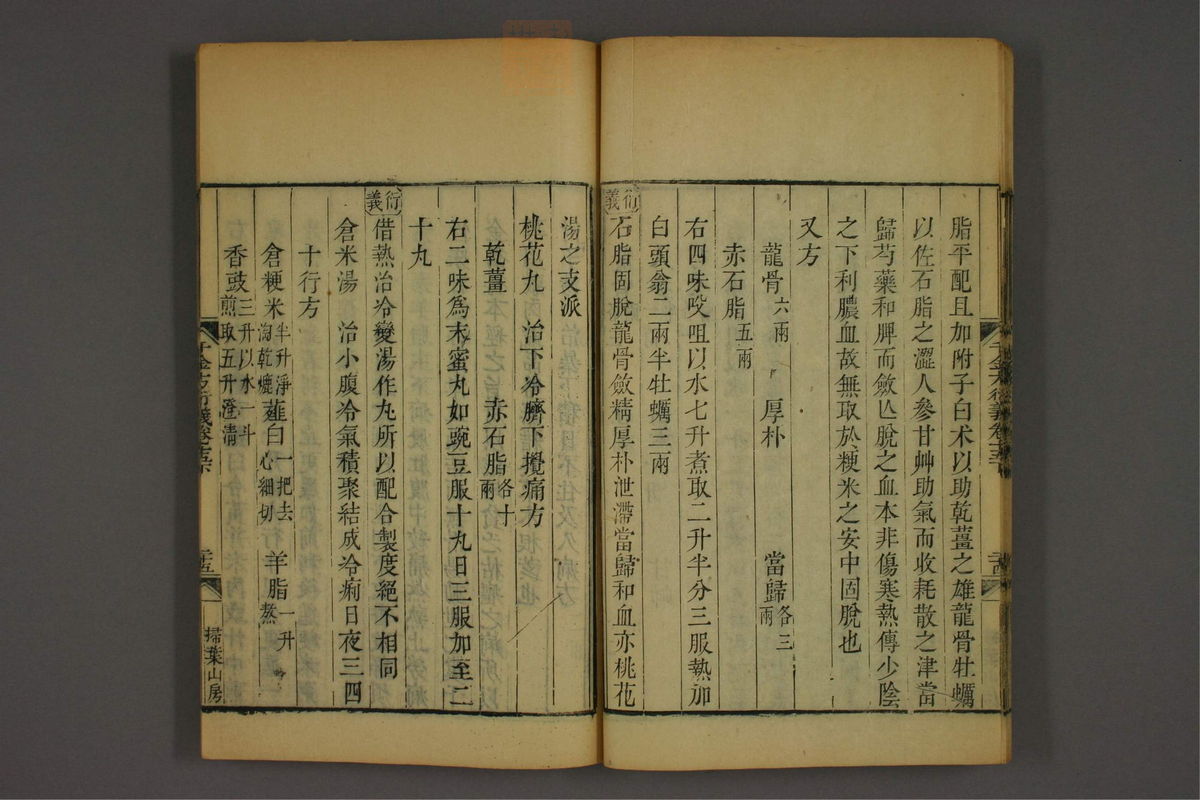 脂平配且加附子白术以助乾薑之雄龍骨牡蠣
以佐石脂之澀人參甘艸助氣而收耗散之津當
歸芍藥和脾而斂亾脫之血本非傷寒熱傳少陰
之下利膿血故無取於粳米之安中固脫也
又方
龍骨六兩 厚朴 當歸各三兩
赤石脂五兩
右四味㕮咀以水七升煮取二升半分三服熱加
白頭翁二兩半牡蠣三兩
衍義
石脂固脫龍骨斂精厚朴泄滯當歸和血亦桃花
湯之支派
桃花丸 治下冷臍下攪痛方
乾薑 赤石脂各十兩
右二味爲末蜜丸如豌豆服十丸日三服加至二
十丸
衍義
借熱治冷變湯作丸所以配合製度絕不相同
倉米湯 治小腹冷氣積聚結成冷痢日夜三四
十行方
倉粳米半升淨淘乾㷶 薤白一把去心細切 羊脂一升熬
香豉三升以水一斗煎取五升澄清
千金方衍義卷
掃葉山房